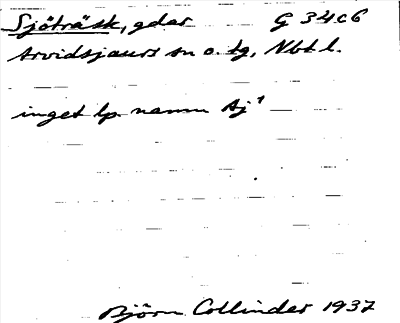 Sjöträsk, gdar G 34 c 6
Arvidsjaurs sn o. tg, Nbt l.
inget lp. namn Aj¹
Björn Collinder 1937